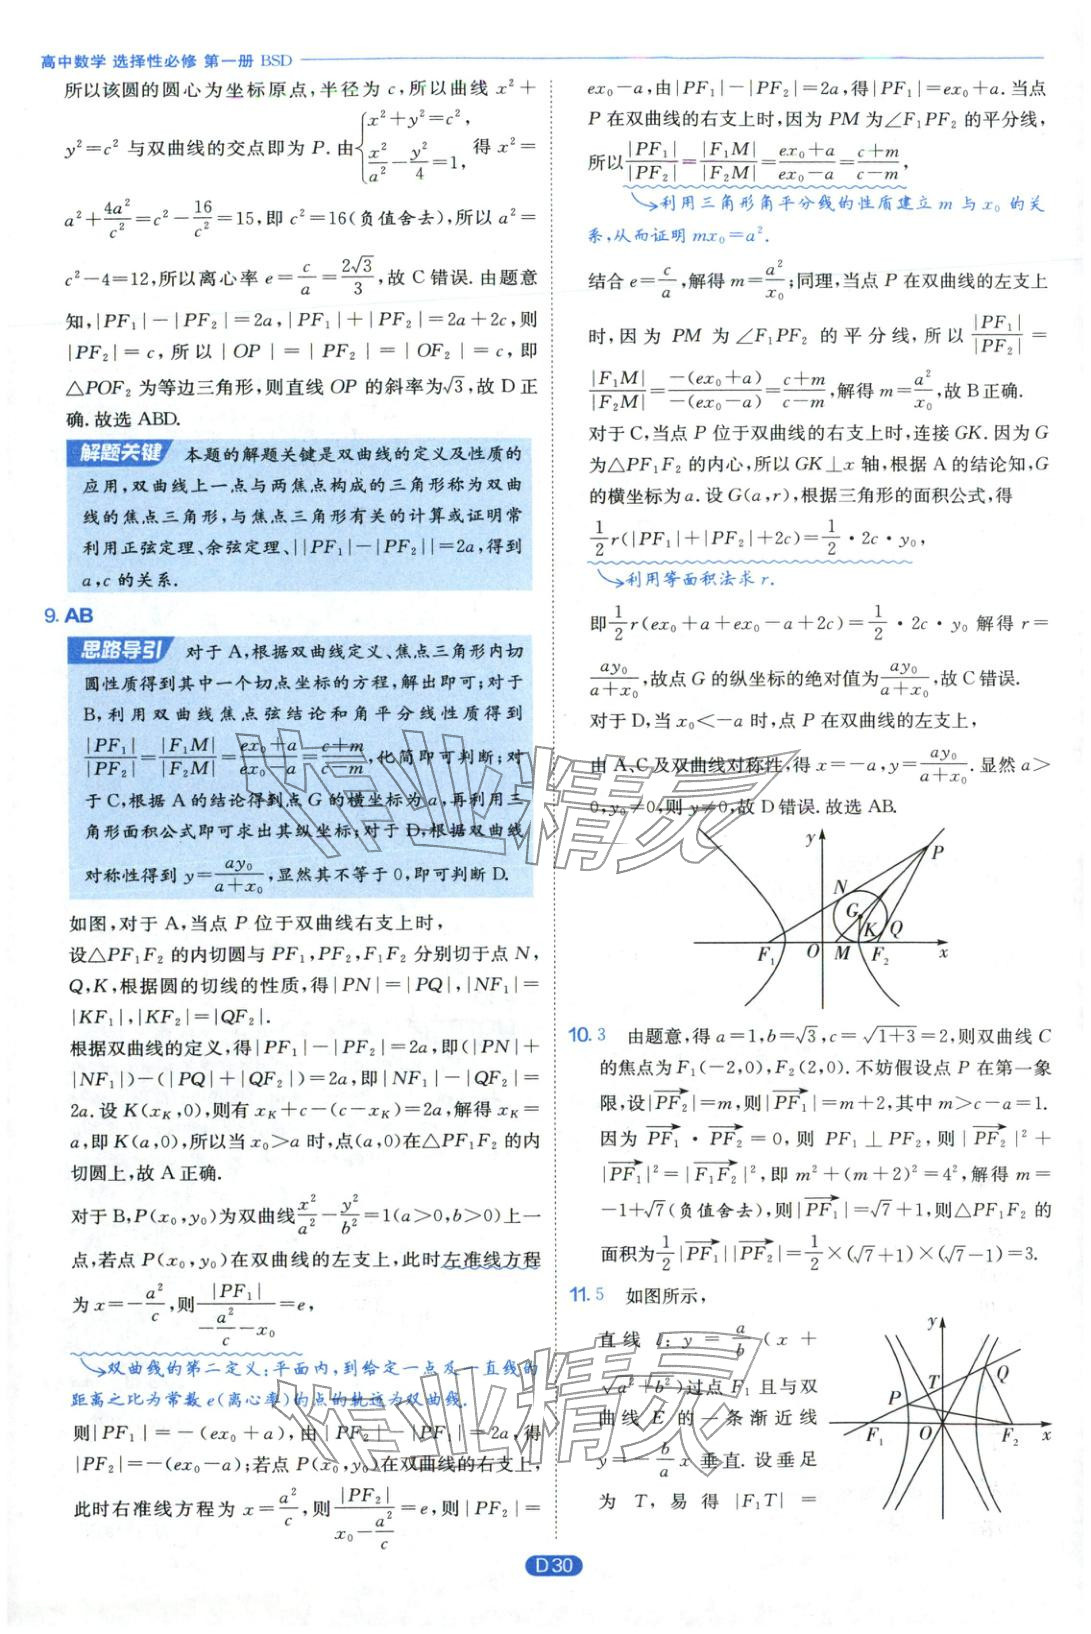 高中数学 选择性必修 第一册 BSD
所以该圆的圆心为坐标原点,半径为 c,所以曲线 x²+
y²=c² 与双曲线的交点即为 P. 由{x²+y²=c², x²/a²-y²/4=1, 得 x²=
a²+4a²/c²=c²-16/c²=15,即 c²=16(负值舍去),所以 a²=
c²-4=12,所以离心率 e=c/a=2√3/3,故 C 错误. 由题意
知,|PF₁|-|PF₂|=2a,|PF₁|+|PF₂|=2a+2c,则
|PF₂|=c,所以|OP|=|PF₂|=|OF₂|=c,即
△POF₂ 为等边三角形,则直线 OP 的斜率为√3,故 D 正
确.故选 ABD.
解题关键 本题的解题关键是双曲线的定义及性质的
应用,双曲线上一点与两焦点构成的三角形称为双曲
线的焦点三角形,与焦点三角形有关的计算或证明常
利用正弦定理、余弦定理、||PF₁|-|PF₂||=2a,得到
a,c 的关系.
9. AB
思路导引 对于 A,根据双曲线定义、焦点三角形内切
圆性质得到其中一个切点坐标的方程,解出即可;对于
B,利用双曲线焦点弦结论和角平分线性质得到
|PF₁|/|PF₂|=|F₁M|/|F₂M|=(ex₀+a)/(ex₀-a)=(c+m)/(c-m),化简即可判断;对
于 C,根据 A 的结论得到点 G 的横坐标为 a,再利用三
角形面积公式即可求出其纵坐标;对于 D,根据双曲线
对称性得到 y=ay₀/(a+x₀),显然其不等于 0,即可判断 D.
如图,对于 A,当点 P 位于双曲线右支上时,
设△PF₁F₂ 的内切圆与 PF₁,PF₂,F₁F₂ 分别切于点 N,
Q,K,根据圆的切线的性质,得|PN|=|PQ|,|NF₁|=
|KF₁|,|KF₂|=|QF₂|.
根据双曲线的定义,得|PF₁|-|PF₂|=2a,即(|PN|+
|NF₁|)-(|PQ|+|QF₂|)=2a,即|NF₁|-|QF₂|=
2a.设 K(x_K,0),则有 x_K+c-(c-x_K)=2a,解得 x_K=
a,即 K(a,0),所以当 x₀>a 时,点(a,0)在△PF₁F₂ 的内
切圆上,故 A 正确.
对于 B,P(x₀,y₀)为双曲线x²/a²-y²/b²=1(a>0,b>0)上一
点,若点 P(x₀,y₀)在双曲线的左支上,此时左准线方程
为 x=-a²/c,则|PF₁|/(-a²/c-x₀)=e,
双曲线的第二定义:平面内,到给定一点及一直线的
距离之比为常数 e(离心率)的点的轨迹为双曲线.
则|PF₁|=-(ex₀+a),由|PF₂|-|PF₁|=2a,得
|PF₂|=-(ex₀-a);若点 P(x₀,y₀)在双曲线的右支上,
此时右准线方程为 x=a²/c,则|PF₂|/(x₀-a²/c)=e,则|PF₂|=
ex₀-a,由|PF₁|-|PF₂|=2a,得|PF₁|=ex₀+a.当点
P 在双曲线的右支上时,因为 PM 为∠F₁PF₂ 的平分线,
所以|PF₁|/|PF₂|=|F₁M|/|F₂M|=(ex₀+a)/(ex₀-a)=(c+m)/(c-m),
利用三角形角平分线的性质建立 m 与 x₀ 的关
系,从而证明 mx₀=a².
结合 e=c/a,解得 m=a²/x₀;同理,当点 P 在双曲线的左支上
时,因为 PM 为∠F₁PF₂ 的平分线,所以|PF₁|/|PF₂|=
|F₁M|/|F₂M|=-(ex₀+a)/-(ex₀-a)=(c+m)/(c-m),解得 m=a²/x₀,故 B 正确.
对于 C,当点 P 位于双曲线的右支上时,连接 GK.因为 G
为△PF₁F₂ 的内心,所以 GK⊥x 轴,根据 A 的结论知,G
的横坐标为 a.设 G(a,r),根据三角形的面积公式,得
1/2r(|PF₁|+|PF₂|+2c)=1/2·2c·y₀,
利用等面积法求 r.
即1/2r(ex₀+a+ex₀-a+2c)=1/2·2c·y₀ 解得 r=
ay₀/(a+x₀),故点 G 的纵坐标的绝对值为ay₀/(a+x₀),故 C 错误.
对于 D,当 x₀<-a 时,点 P 在双曲线的左支上,
由 A、C 及双曲线对称性,得 x=-a,y=ay₀/(a+x₀).显然 a>
0,y₀≠0,则 y≠0,故 D 错误.故选 AB.
y
P
N
G
K Q
F₁ O M F₂ x
10. 3 由题意,得 a=1,b=√3,c=√(1+3)=2,则双曲线 C
的焦点为 F₁(-2,0),F₂(2,0).不妨假设点 P 在第一象
限,设|PF₂→|=m,则|PF₁→|=m+2,其中 m>c-a=1.
因为 PF₁→·PF₂→=0,则 PF₁⊥PF₂,则|PF₂→|²+
|PF₁→|²=|F₁F₂→|²,即 m²+(m+2)²=4²,解得 m=
-1+√7(负值舍去),则|PF₁→|=√7+1,则△PF₁F₂ 的
面积为1/2|PF₁→||PF₂→|=1/2×(√7+1)×(√7-1)=3.
11. 5 如图所示,
直线 l:y=a/b(x+
√(a²+b²))过点 F₁ 且与双
曲线 E 的一条渐近线
y=-b/a x 垂直.设垂足
为 T,易得|F₁T|=
y
Q
T
P
F₁ O F₂ x
D30
作业精灵
作业精灵